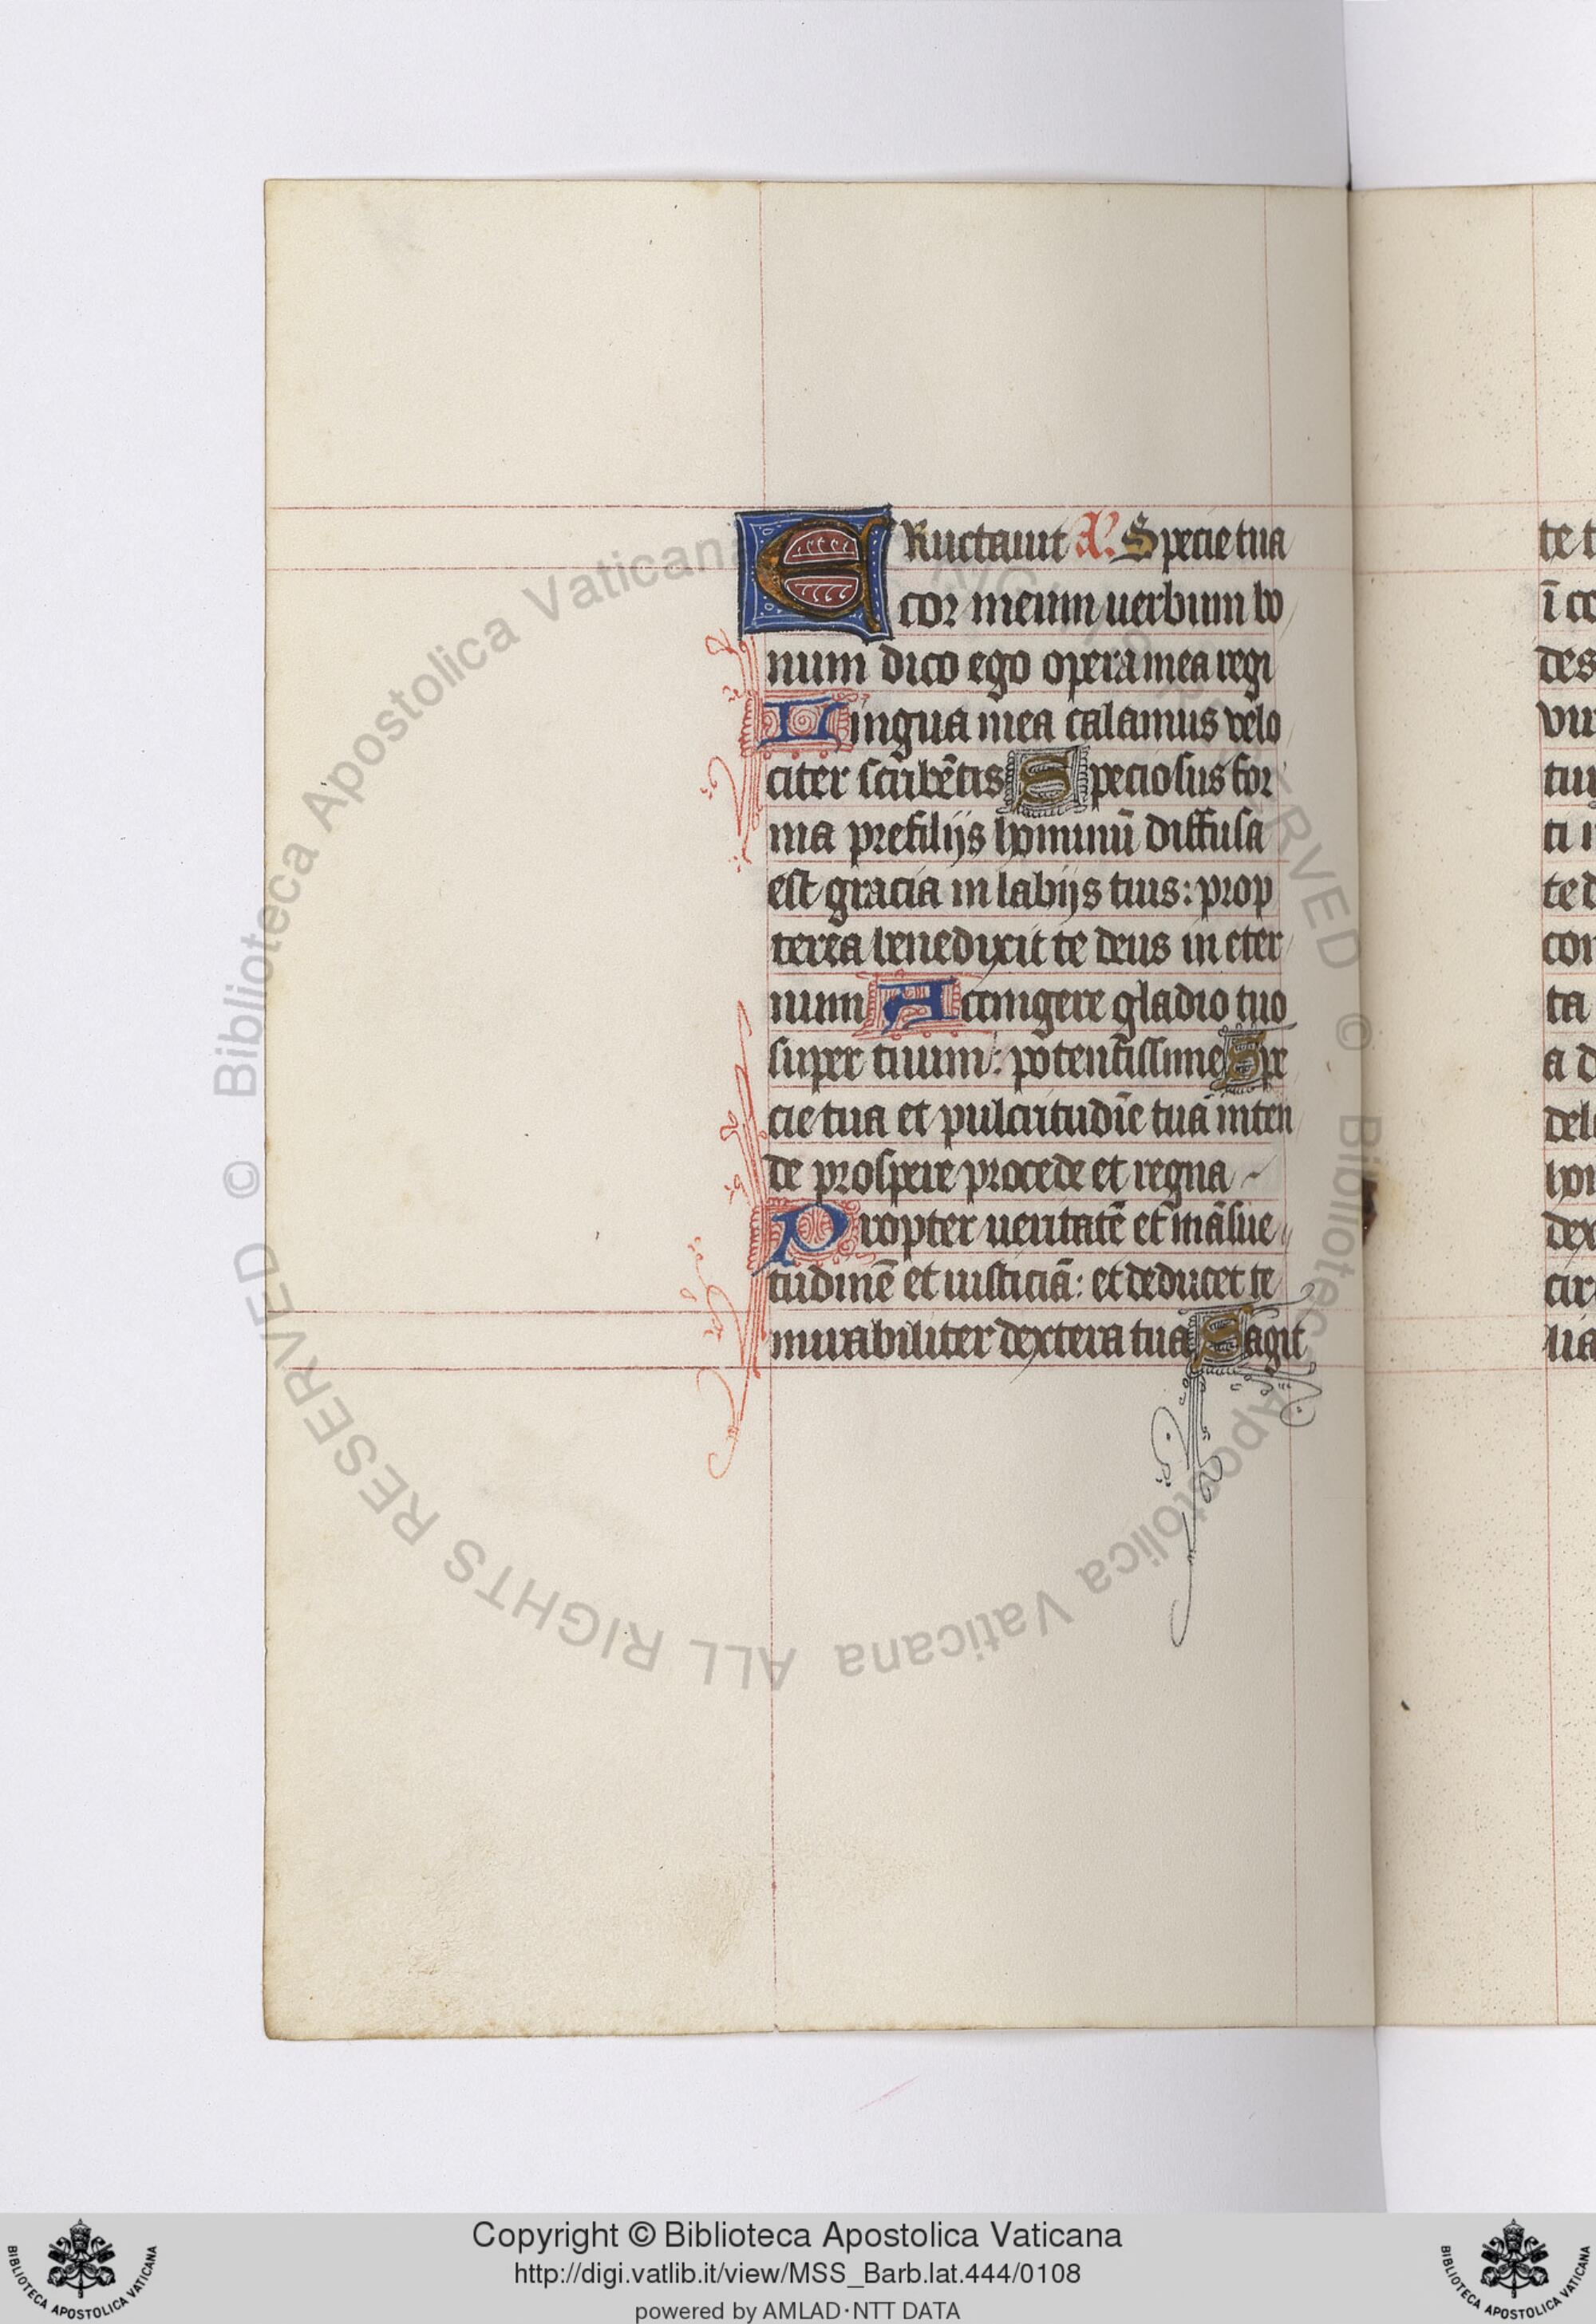 ERuctauit A. Specie tua
cor meum uerbum bo
num dico ego opera mea regi
Lingua mea calamus velo
citer scribe͂tis Speciosus for
ma prefilijs hominū diffusa
est gracia in labijs tuis: prop
terea benedixit te deus in eter
num Accingere gladio tuo
super tuum: potentissime Spe
cie tua et pulcritudīe tuā inten
de prospere procede et regna
Propter ueritatē et māsue
tudinē et iusticiā: et deducet te
mirabiliter dextera tua Sagit
te t
ī co
des
vir
tuū
ti i
te d
con
ta
a d
del
hon
dex
cir
lia
© Biblioteca Apostolica Vaticana ALL RIGHTS RESERVED © Biblioteca Apostolica Vaticana ALL RIGHTS RESERVED
Copyright © Biblioteca Apostolica Vaticana
http://digi.vatlib.it/view/MSS_Barb.lat.444/0108
powered by AMLAD·NTT DATA
BIBLIOTECA APOSTOLICA VATICANA
BIBLIOTECA APOSTOLICA VATICANA